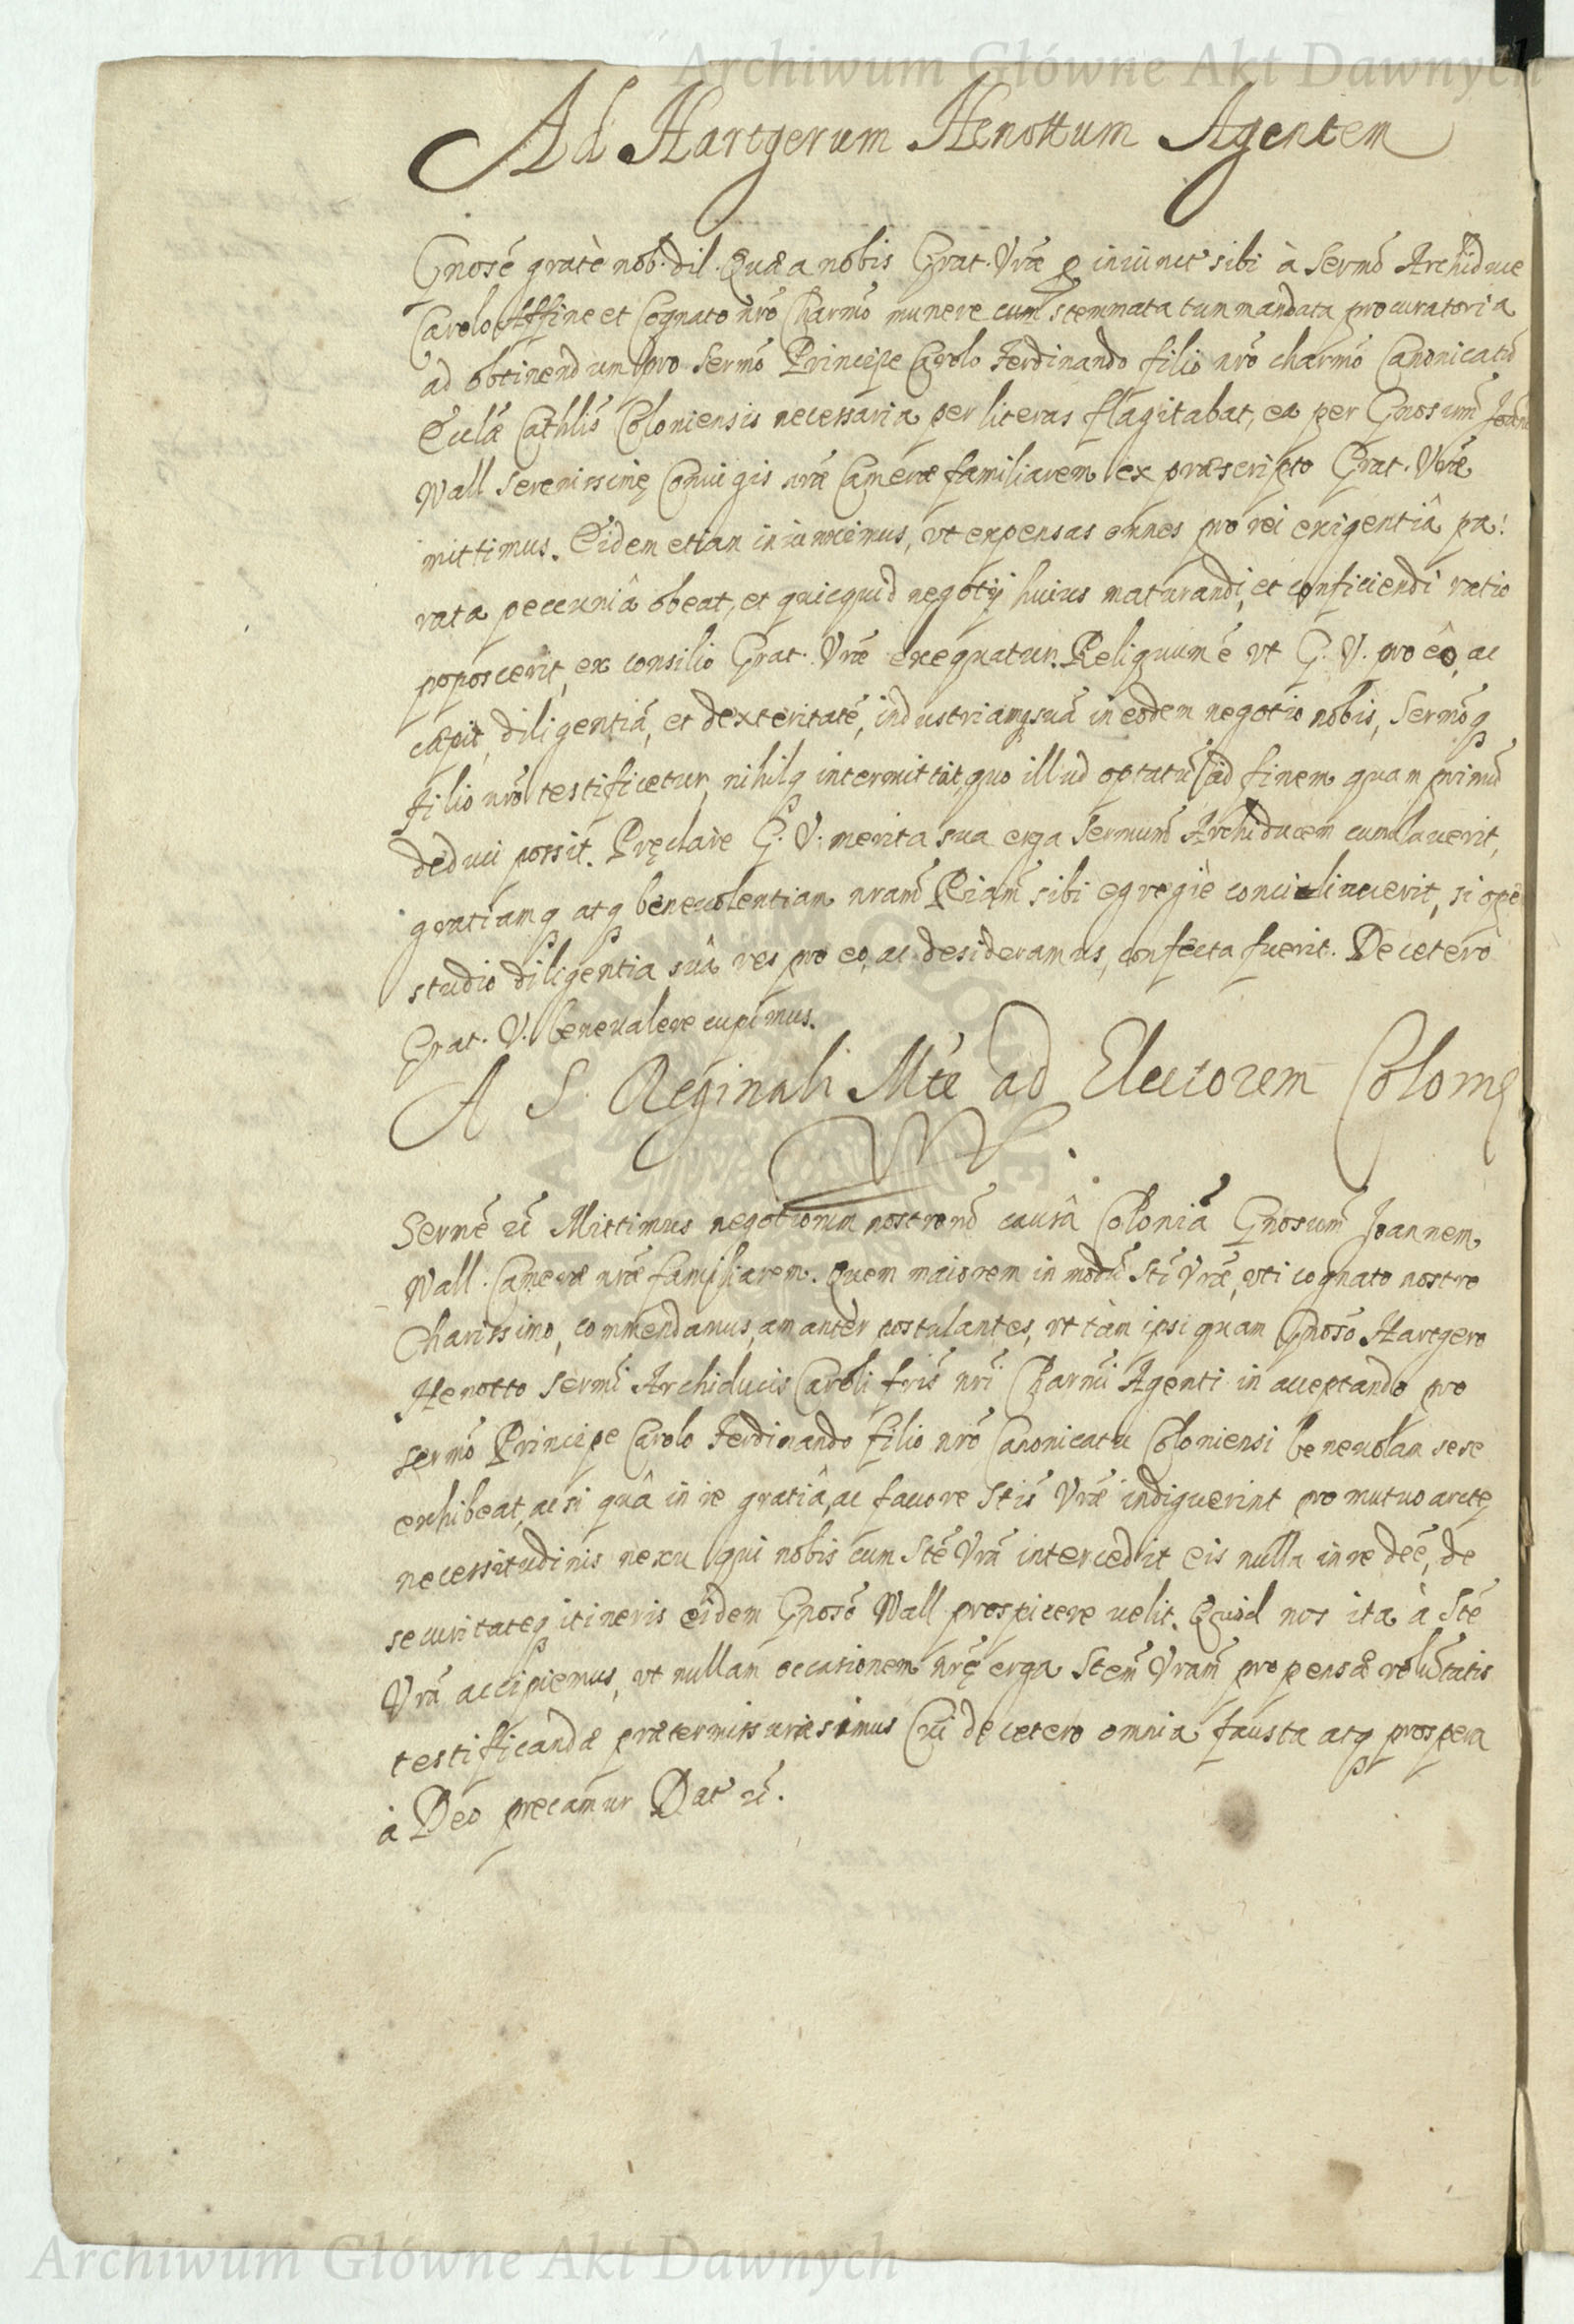 Archiwum Główne Akt Dawnych
Ad Hartgerum Henottum Agentem
Gnosé gratè nob. dil. Quæ a nobis Grat. Vrã p iniunct sibi à Sermõ Archiduce
Carolo Affine et Cognato nrõ Charmõ munere cum stemmata tum mandata procuratoria
ad obtinendum pro Sermõ Principe Carolo Ferdinando filio nrõ charmõ Canonicatũ
Ecclæ Cathlis Coloniensis necessaria per literas flagitabat, ea per Gnosum Joan
Wall Serenissimę Coniugis nrã Cameræ familiarem ex præscripto Grat. Vrã
mittimus. Eidem etiam iniunximus, vt expensas omnes pro rei exigentiâ pa:
rata pecuniâ obeat, et quicquid negotij huius maturandi, et conficiendi ratio
poposcerit, ex consilio Grat. Vrã exequatur. Reliquum ẽ vt G. V. pro eo, ac
cæpit, diligentiã, et dexteritatẽ, industriamq suã in eodem negotio nobis, Sermõq
filio nrõ testificetur, nihilq intermittat, quo illud optatũ ad finem quam primũ
deduci possit. Pręclarè G. V. merita sua erga Sermum Archiducem cumulauerit,
gratiamq atq beneuolentiam nram Riam sibi egregiè conciliauerit, si opè
studio diligentia suâ res pro eo, ac desideramus, confecta fuerit. De cetero
Grat. V. bene valere cupimus.
A S. Reginali Mte ad Electorem Coloniẽ
Serme &c Mittimus negotiorum nostrorum causâ Coloniã Gnosum Joannem
Wall Cameræ nrã familiarem. Quem maiorem in modũ Sti Vrã, vti cognato nostro
Charissimo, commendamus, amanter postulantes, vt tàm ipsi quam Gnosõ Hartgero
Henotto Sermi Archiducis Caroli fris nri Charmi Agenti in acceptando pro
sermõ Principe Carolo Ferdinando filio nrõ Canonicatu Coloniensi beneuolam sese
exhibeat, ac si quâ in re gratiâ, ac fauore Stis Vrã indiguerint pro mutuo arctę
necessitudinis nexu qui nobis cum Stẽ Vrã intercedit eis nulla in re deẽ, de
securitateq itineris eidem Gnosõ Wall prospicere uelit. Quod nos ita à Stẽ
Vrã accipiemus, vt nullam occasionem nrę erga Stem Vram propensæ volũtatis
testificandæ prætermissuræ simus Cui de cetero omnia fausta atq prospera
à Deo precamur Dat &c.
Archiwum Główne Akt Dawnych